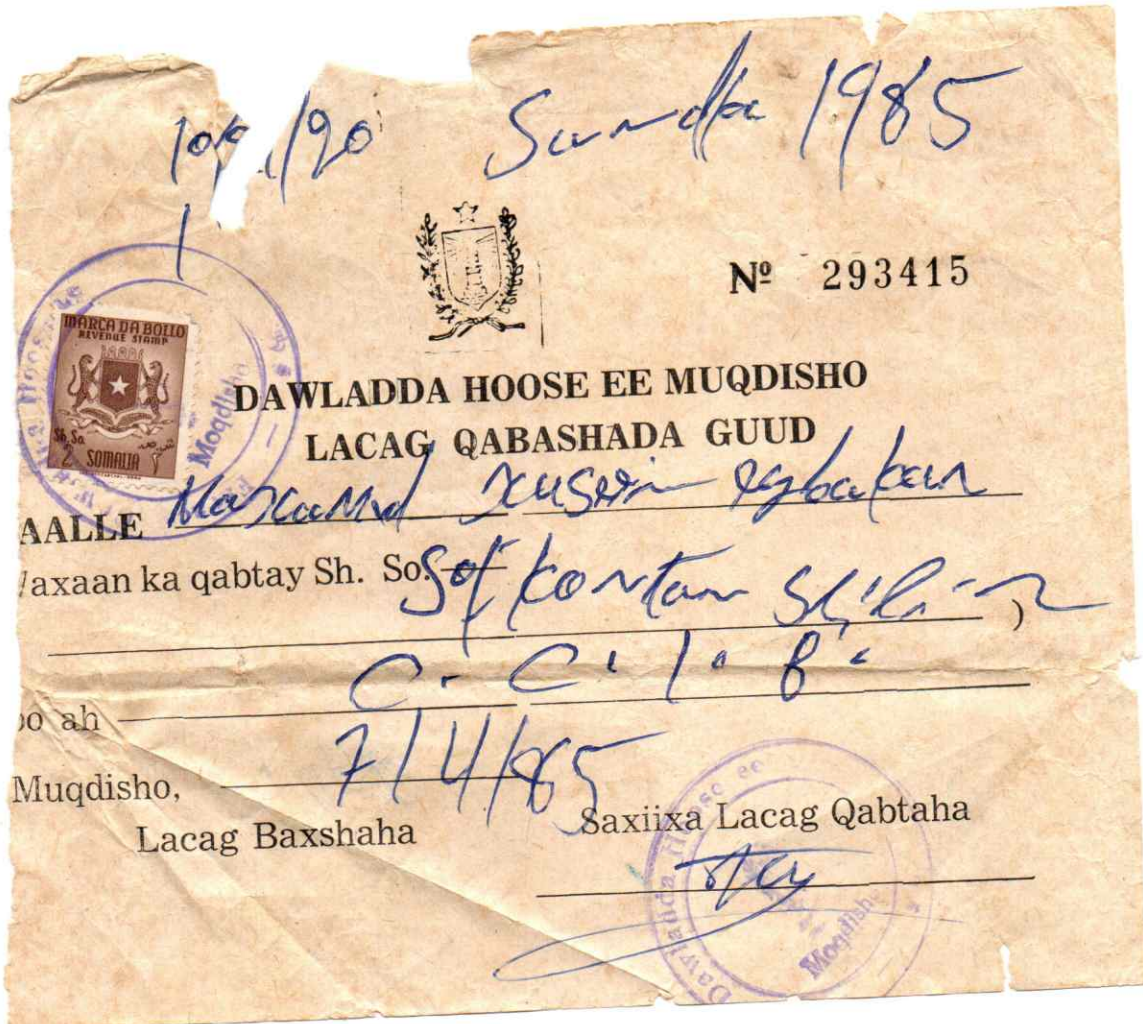 1985
Nº 293415
MARCA DA BOLLO
REVENUE STAMP
Sh. So.
2 SOMALIA ٢
DAWLADDA HOOSE EE MUQDISHO
LACAG QABASHADA GUUD
Moqdisho
AALLE Maxamed xuseen
axaan ka qabtay Sh. So.
)
C. C. 1. B.
oo ah
Muqdisho, 7/4/85
Lacag Baxshaha Saxiixa Lacag Qabtaha
Dawladda Hoose ee
Moqdisho